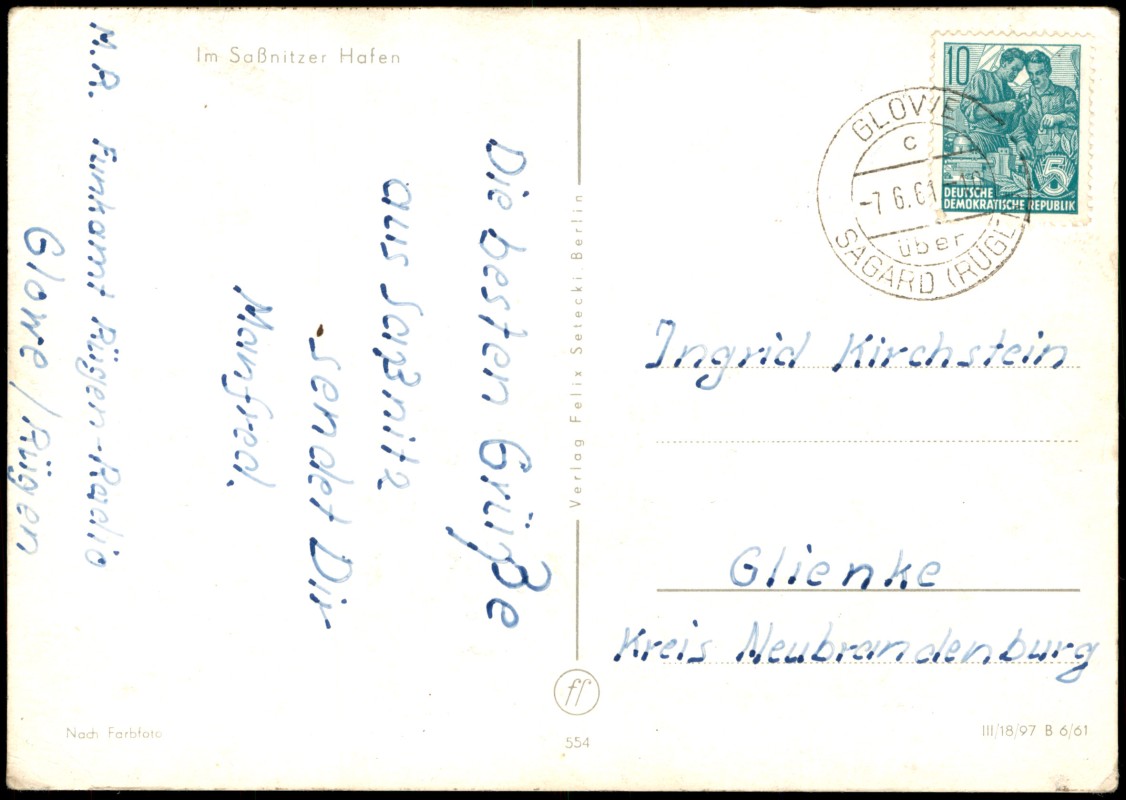 Im Saßnitzer Hafen
M.R. Funkamt Rügen-Radio
Glowe / Rügen
Die besten Grüße
aus Saßnitz
sendet Dir
Manfred.
Verlag Felix Setecki, Berlin
10
5
DEUTSCHE
DEMOKRATISCHE REPUBLIK
GLOWE
c
-7.6.61
über
SAGARD (RÜGEN
Ingrid Kirchstein
Glienke
Kreis Neubrandenburg
Nach Farbfoto
ff
554
III/18/97 B 6/61